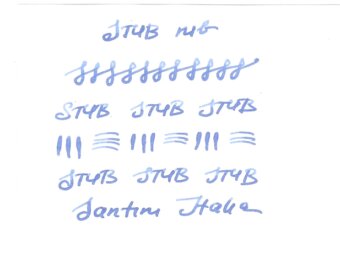 STUB nib
STUB STUB STUB
STUB STUB STUB
Santini Italia